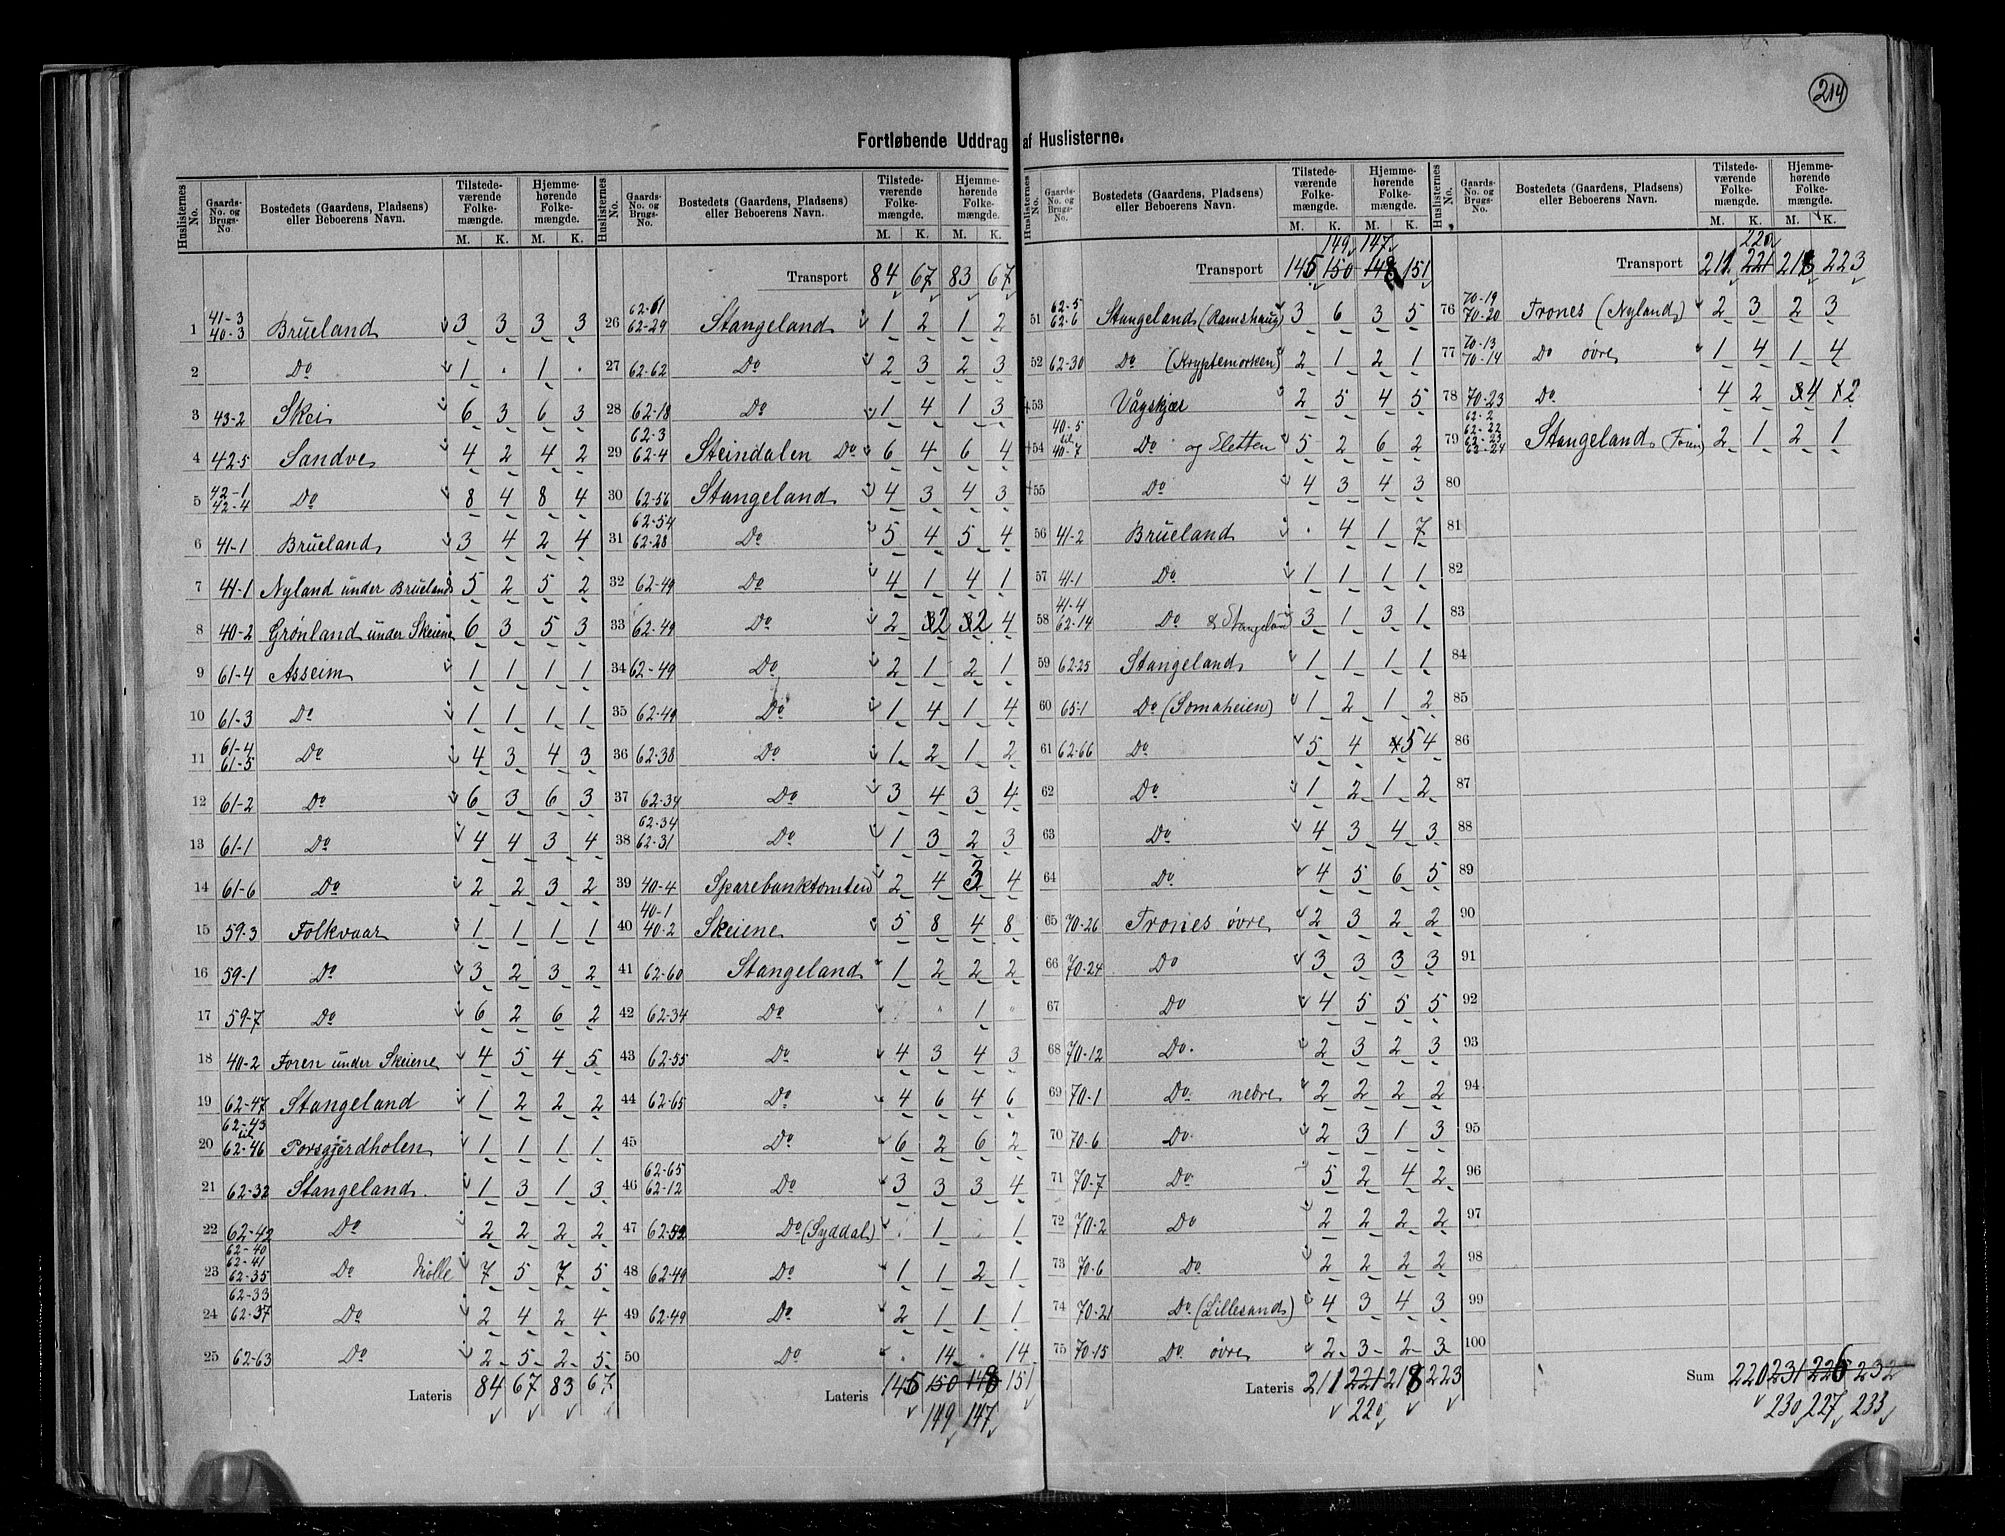 214
Fortløbende Uddrag af Huslisterne.
Huslisternes No. | Gaards-No. og Brugs-No. | Bostedets (Gaardens, Pladsens) eller Beboerens Navn. | Tilstedeværende Folkemængde. M. K. | Hjemmehørende Folkemængde. M. K.
1 | 41-3 40-3 | Brueland | 3 | 3 | 3 | 3
2 | | Do | 1 | . | 1 | .
3 | 43-2 | Skei | 6 | 3 | 6 | 3
4 | 42-5 | Sandve | 4 | 2 | 4 | 2
5 | 42-1 42-4 | Do | 8 | 4 | 8 | 4
6 | 41-1 | Brueland | 3 | 4 | 2 | 4
7 | 41-1 | Nyland under Brueland | 5 | 2 | 5 | 2
8 | 40-2 | Grønland under Skeiene | 6 | 3 | 5 | 3
9 | 61-4 | Asseim | 1 | 1 | 1 | 1
10 | 61-3 | Do | 1 | 1 | 1 | 1
11 | 61-4 61-5 | Do | 4 | 3 | 4 | 3
12 | 61-2 | Do | 6 | 3 | 6 | 3
13 | 61-1 | Do | 4 | 4 | 3 | 4
14 | 61-6 | Do | 2 | 2 | 3 | 2
15 | 59-3 | Folkvaar | 1 | 1 | 1 | 1
16 | 59-1 | Do | 3 | 2 | 3 | 2
17 | 59-7 | Do | 6 | 2 | 6 | 2
18 | 40-2 | Foren under Skeiene | 4 | 5 | 4 | 5
19 | 62-47 | Stangeland | 1 | 2 | 2 | 2
20 | 62-43 til 62-46 | Porsgjerdholen | 1 | 1 | 1 | 1
21 | 62-32 | Stangeland | 1 | 3 | 1 | 3
22 | 62-42 | Do | 2 | 2 | 2 | 2
23 | 62-40 62-41 62-35 | Do Mølle | 7 | 5 | 7 | 5
24 | 62-33 62-37 | Do | 2 | 4 | 2 | 4
25 | 62-63 | Do | 2 | 5 | 2 | 5
Lateris | 84 | 67 | 83 | 67
Huslisternes No. | Gaards-No. og Brugs-No. | Bostedets (Gaardens, Pladsens) eller Beboerens Navn. | Tilstedeværende Folkemængde. M. K. | Hjemmehørende Folkemængde. M. K.
Transport | 84 | 67 | 83 | 67
26 | 62-61 62-29 | Stangeland | 1 | 2 | 1 | 2
27 | 62-62 | Do | 2 | 3 | 2 | 3
28 | 62-18 | Do | 1 | 4 | 1 | 3
29 | 62-3 62-4 | Steindalen Do | 6 | 4 | 6 | 4
30 | 62-56 | Stangeland | 4 | 3 | 4 | 3
31 | 62-54 62-28 | Do | 5 | 4 | 5 | 4
32 | 62-49 | Do | 4 | 1 | 4 | 1
33 | 62-49 | Do | 2 | 3 2 | 3 2 | 4
34 | 62-49 | Do | 2 | 1 | 2 | 1
35 | 62-49 | Do | 1 | 4 | 1 | 4
36 | 62-38 | Do | 1 | 2 | 1 | 2
37 | 62-34 | Do | 3 | 4 | 3 | 4
38 | 62-34 62-31 | Do | 1 | 3 | 2 | 3
39 | 40-4 | Sparebanktomten | 2 | 4 | 3 | 4
40 | 40-1 40-2 | Skeiene | 5 | 8 | 4 | 8
41 | 62-60 | Stangeland | 1 | 2 | 2 | 2
42 | 62-34 | Do | | " | 1 | "
43 | 62-55 | Do | 4 | 3 | 4 | 3
44 | 62-65 | Do | 4 | 6 | 4 | 6
45 | | Do | 6 | 2 | 6 | 2
46 | 62-65 62-12 | Do | 3 | 3 | 3 | 4
47 | 62-59 | Do (Syddal) | . | 1 | . | 1
48 | 62-49 | Do | 1 | 1 | 2 | 1
49 | 62-49 | Do | 2 | 1 | 1 | 1
50 | | Do | " | 14 | " | 14
Lateris | 145 | 150 | 148 | 151
149 147
Huslisternes No. | Gaards-No. og Brugs-No. | Bostedets (Gaardens, Pladsens) eller Beboerens Navn. | Tilstedeværende Folkemængde. M. K. | Hjemmehørende Folkemængde. M. K.
149 147
Transport | 145 | 150 | 148 | 151
51 | 62-5 62-6 | Stangeland (Ramshaug) | 3 | 6 | 3 | 5
52 | 62-30 | Do (Kryptemorken) | 2 | 1 | 2 | 1
53 | | Vågskjær | 2 | 5 | 4 | 5
54 | 40-5 til 40-7 | Do og Sletten | 5 | 2 | 6 | 2
55 | | Do | 4 | 3 | 4 | 3
56 | 41-2 | Brueland | . | 4 | 1 | 7
57 | 41-1 | Do | 1 | 1 | 1 | 1
58 | 41-4 62-14 | Do & Stangeland | 3 | 1 | 3 | 1
59 | 62-25 | Stangeland | 1 | 1 | 1 | 1
60 | 65-1 | Do (Somaheien) | 1 | 2 | 1 | 2
61 | 62-66 | Do | 5 | 4 | 4 5 | 4
62 | | Do | 1 | 2 | 1 | 2
63 | | Do | 4 | 3 | 4 | 3
64 | | Do | 4 | 5 | 6 | 5
65 | 70-26 | Trones øvre | 2 | 3 | 2 | 2
66 | 70-24 | Do | 3 | 3 | 3 | 3
67 | | Do | 4 | 5 | 5 | 5
68 | 70-12 | Do. | 2 | 3 | 2 | 3
69 | 70-1 | Do. nedre | 2 | 2 | 2 | 2
70 | 70-6 | Do. | 2 | 3 | 1 | 3
71 | 70-7 | Do | 5 | 2 | 4 | 2
72 | 70-2 | Do | 2 | 2 | 2 | 2
73 | 70-6 | Do | 2 | 2 | 2 | 2
74 | 70-21 | Do. (Lillesand) | 4 | 3 | 4 | 3
75 | 70-15 | Do. øvre | 2 | 3 | 2 | 3
Lateris | 211 | 221 | 218 | 223
220
Huslisternes No. | Gaards-No. og Brugs-No. | Bostedets (Gaardens, Pladsens) eller Beboerens Navn. | Tilstedeværende Folkemængde. M. K. | Hjemmehørende Folkemængde. M. K.
220
Transport | 211 | 221 | 218 | 223
76 | 70-19 70-20 | Trones (Nyland) | 2 | 3 | 2 | 3
77 | 70-13 70-14 | Do øvre | 1 | 4 | 1 | 4
78 | 70-23 | Do | 4 | 2 | 3 4 | 1 2
79 | 62-2 62-22 62-23 62-24 | Stangeland | 2 | 1 | 2 | 1
80
81
82
83
84
85
86
87
88
89
90
91
92
93
94
95
96
97
98
99
100
Sum | 220 | 231 | 226 | 232
230 227 233